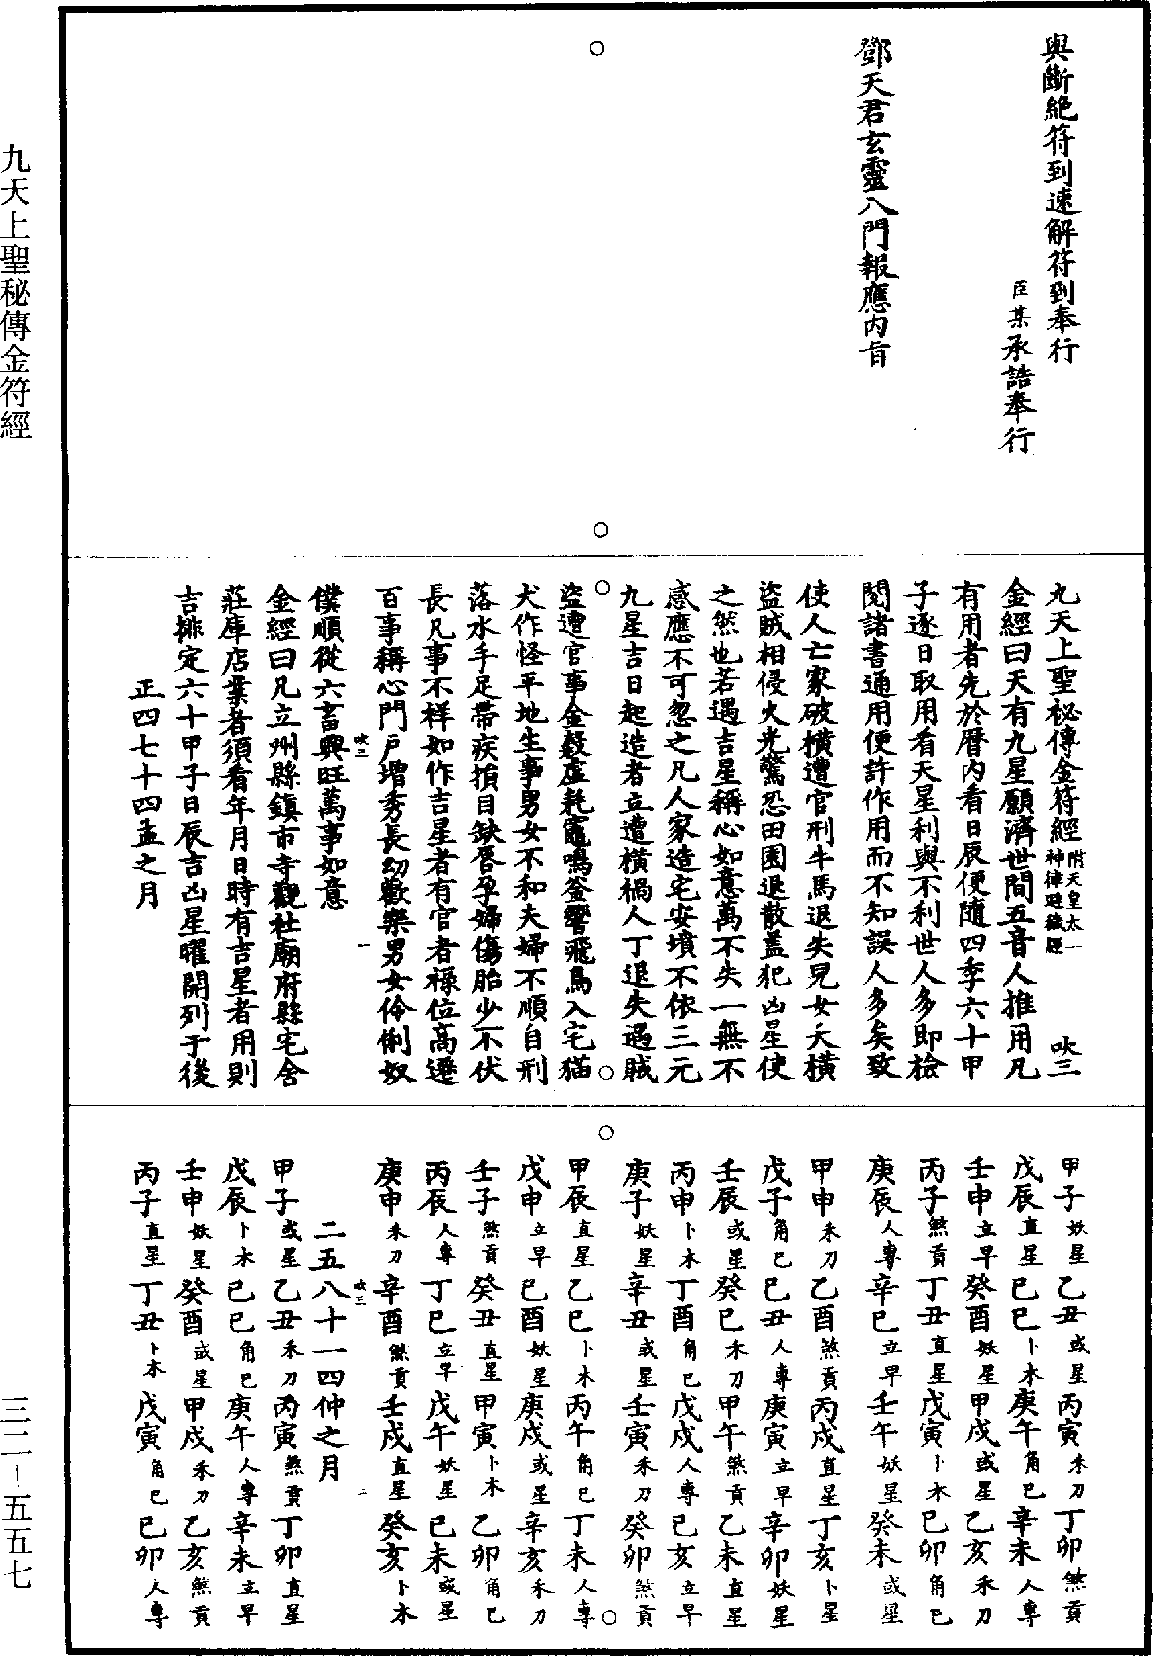 與斷絶符到速解符到奉行
臣某承誥奉行
鄧天君玄靈八門報應內旨
九天上聖祕傳金符經附天皇太一神律避穢經 吠三
金經曰天有九星願濟世間五音人推用凡
有用者先於曆內看日辰便隨四季六十甲
子逐日取用看天星利與不利世人多即檢
閱諸書通用便許作用而不知誤人多矣致
使人亡家破橫遭官刑牛馬退失兒女夭橫
盜賊相侵火光驚恐田園退散蓋犯凶星使
之然也若遇吉星稱心如意萬不失一無不
感應不可忽之凡人家造宅安墳不依三元
九星吉日起造者立遭橫禍人丁退失遇賊
盜遭官事金穀虛耗竈鳴釜響飛鳥入宅猫
犬作怪平地生事男女不和夫婦不順自刑
落水手足帶疾損目缺唇孕婦傷胎少不伏
長凡事不祥如作吉星者有官者祿位高遷
百事稱心門戶增秀長幼歡樂男女伶俐奴
吠三 一
僕順從六畜興旺萬事如意
金經曰凡立州縣鎮市寺觀社廟府縣宅舍
莊庫店業者須看年月日時有吉星者用則
吉排定六十甲子日辰吉凶星曜開列于後
正四七十四孟之月
甲子妖星乙丑或星丙寅禾刀丁卯煞貢
戊辰直星己巳卜木庚午角已辛未人專
壬申立早癸酉妖星甲戌或星乙亥禾刀
丙子煞貢丁丑直星戊寅卜木己卯角已
庚辰人專辛巳立早壬午妖星癸未或星
甲申禾刀乙酉煞貢丙戌直星丁亥卜星
戊子角已己丑人專庚寅立早辛卯妖星
壬辰或星癸巳禾刀甲午煞貢乙未直星
丙申卜木丁酉角已戊戌人專己亥立早
庚子妖星辛丑或星壬寅禾刀癸卯煞貢
甲辰直星乙巳卜木丙午角已丁未人專
戊申立早己酉妖星庚戌或星辛亥禾刀
壬子煞貢癸丑直星甲寅卜木乙卯角已
丙辰人專丁巳立早戊午妖星己未或星
庚申禾刀辛酉煞貢壬戌直星癸亥卜木
吠三 二
二五八十一四仲之月
甲子或星乙丑禾刀丙寅煞貢丁卯直星
戊辰卜木己巳角已庚午人專辛未立早
壬申妖星癸酉或星甲戌禾刀乙亥煞貢
丙子直星丁丑卜木戊寅角已己卯人專
九天上聖秘傳金符經
三二－五五七